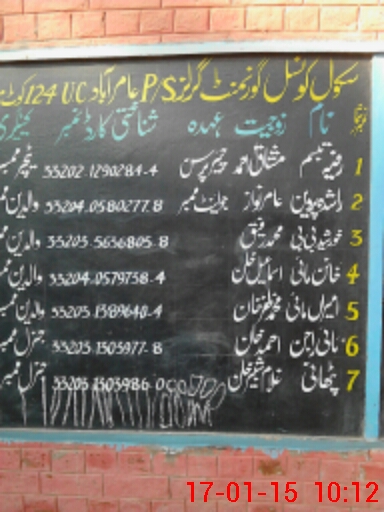 سکول کونسل گورنمنٹ گرلز P/S عامر آباد 124 UC کوٹ
نمبر نام زوجیت عہدہ شناختی کارڈ نمبر کیٹگری
1 رفیہ تبسم مشتاق احمد چیئر پرسن 33202.1290284-4 ٹیچر ممبر
2 راشدہ پروین عامر نواز جوائنٹ ممبر 33204.0580277.8 والدین
3 خورشید بی بی محمد رفیق 33203.5636805.8 والدین
4 خانن مائی اسماعیل خان 33204.0579758.4 والدین
5 امیراں مائی مظفر خان 33203.1389640.4 والدین
6 احمد خان 33203.1503977-8 جنرل ممبر
7 پٹھانی غلام شبیر خان 33203.1503986.0 جنرل ممبر
17-01-15 10:12